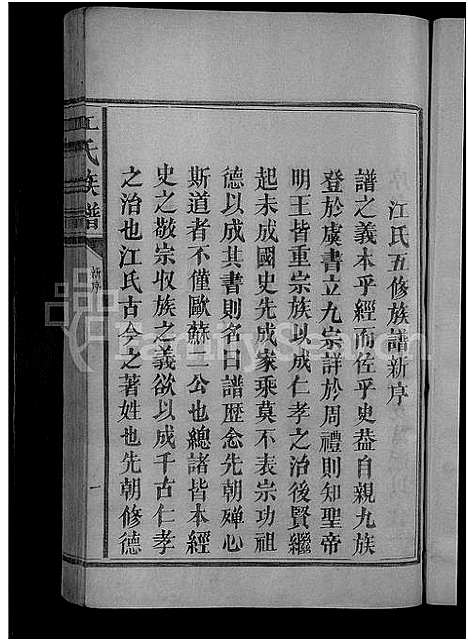 江氏五修族譜新序
譜之義本乎經而佐乎史葢自親九族
登於虞書立九宗詳於周禮則知聖帝
明王皆重宗族以成仁孝之治後賢繼
起未成國史先成家乘莫不表宗功祖
德以成其書則名曰譜歷念先朝殫心
斯道者不僅歐蘇二公也總諸皆本經
史之敬宗収族之義欲以成千古仁孝
之治也江氏古今之著姓也先朝修德
江氏族譜
新序
一